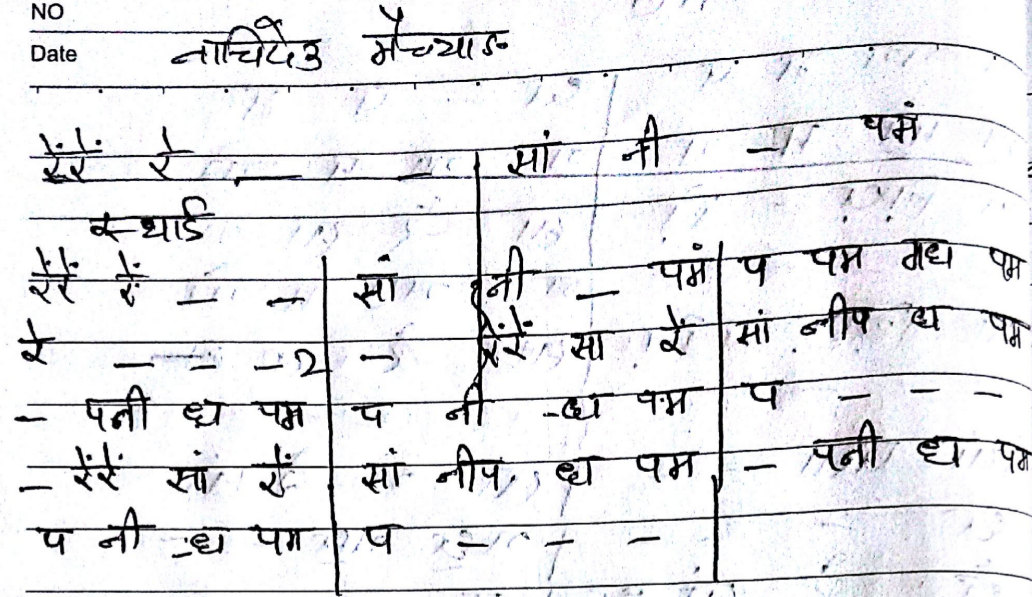 NO
Date
रेंरें रे — - | सां नी - पमं
स्थाई
रेंरें रें - - | सां नी - पमं | प पम मध पम
रे - - - 2 | - रेंरें सा रें | सां नीप ध पम
- पनी ध पम | प नी -ध पम | प - - -
- रेंरें सां रें | सां नीप ध पम | - पनी ध पम
प नी -ध पम | प - - -